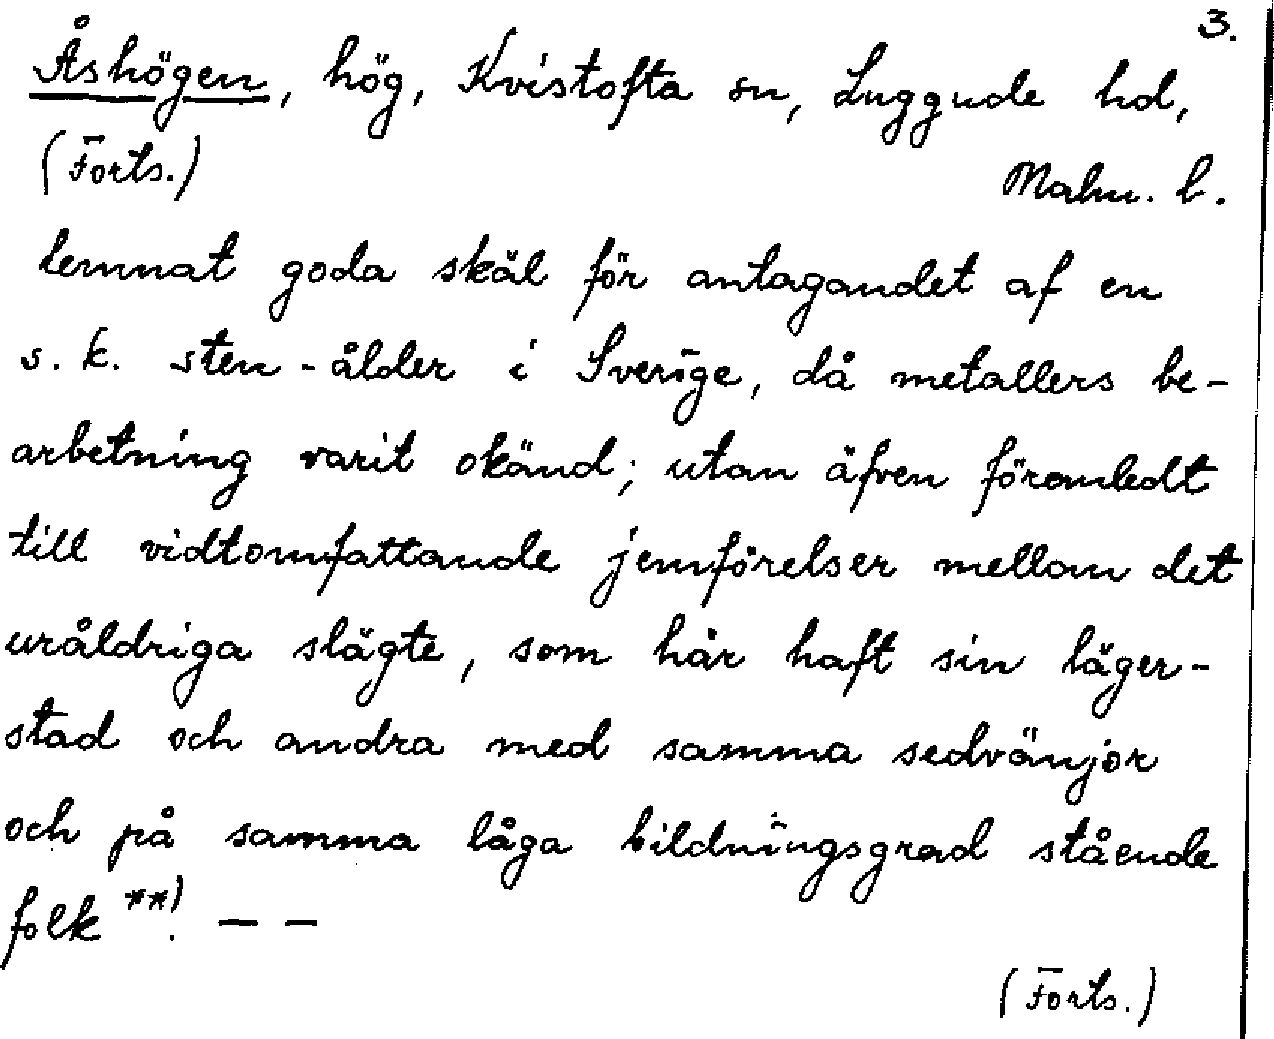 3.
Åshögen, hög, Kvistofta sn, Luggude hd,
(Forts.) Malm. l.
lemnat goda skäl för antagandet af en
s. k. sten-ålder i Sverige, då metallers be-
arbetning varit okänd; utan äfven föranledt
till vidtomfattande jemförelser mellan det
uråldriga slägte, som här haft sin läger-
stad och andra med samma sedvänjor
och på samma låga bildningsgrad stående
folk **). — —
(Forts.)